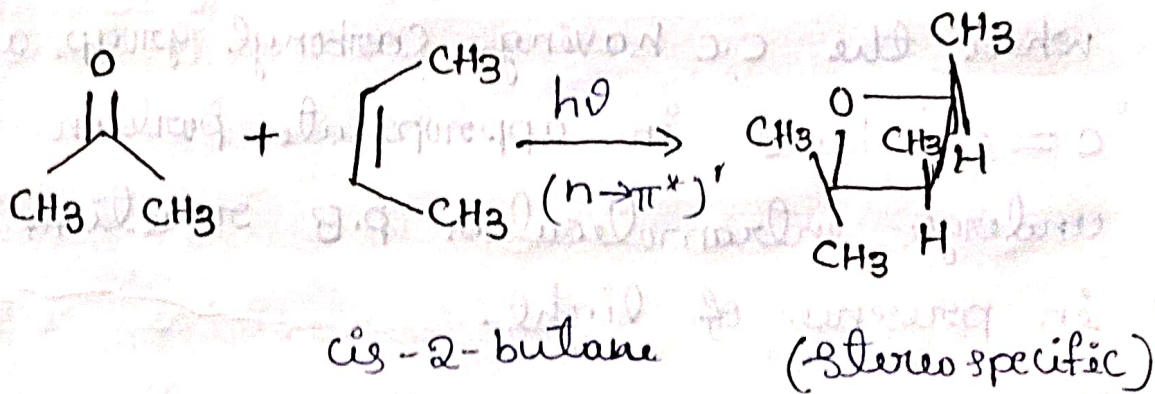 O
CH3 CH3
+
CH3
CH3
hϑ
(n→π*)'
CH3
O
CH3 CH3 H
CH3 H
cis-2-butane (Stereospecific)